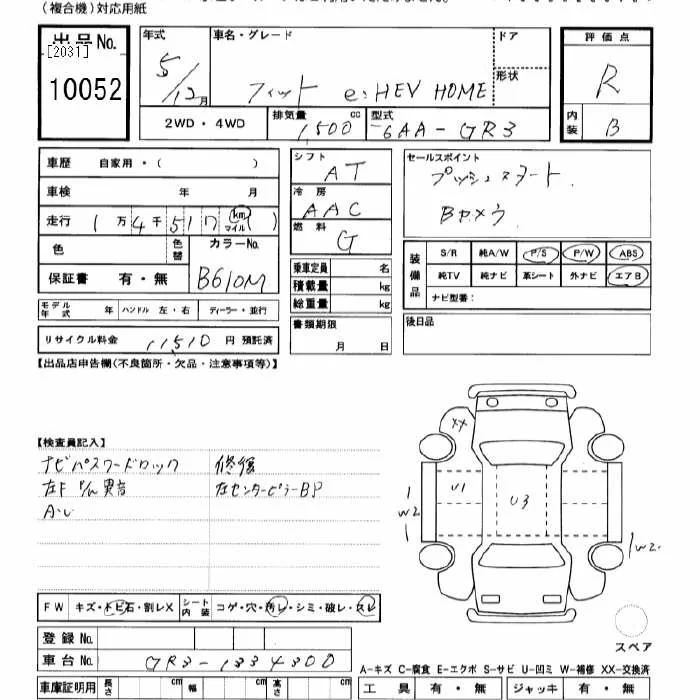 (複合機)対応用紙
出品No. [2031] 10052
年式 5/12月
車名・グレード フィット e:HEV HOME
ドア
形状
評価点 R
内装 B
2WD・4WD
排気量 1,500cc
型式 6AA-GR3
車歴 自家用・( )
車検 年 月
走行 1万4千517 (km マイル)
色 色替 カラーNo. B610M
保証書 有・無
モデル年式 年 ハンドル 左・右 ディーラー・並行
リサイクル料金 11,510円 預託済
シフト AT
冷房 AAC
燃料 G
乗車定員 名
積載量 kg
総重量 kg
書類期限 月 日
セールスポイント
プッシュスタート.
Bカメラ
装備品 S/R 純A/W P/S P/W ABS
純TV 純ナビ 革シート 外ナビ エアB
ナビ型番:
後日品
【出品店申告欄(不良箇所・欠品・注意事項等)】
【検査員記入】
ナビパスワードロック 修復
左F 異音 左センターピラーBP
A・U
XX
U1
U3
W2
W2
FW キズ・トビ石・割レX シート内装 コゲ・穴・汚レ・シミ・破レ・スレ
登録No.
車台No. GR3-1334300
車庫証明用 長さ cm 幅 cm 高さ cm
スペア
A-キズ C-腐食 E-エクボ S-サビ U-凹ミ W-補修 XX-交換済
工具 有・無 ジャッキ 有・無